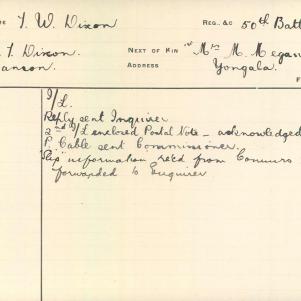 T. W. Dixon REG. &c 50th Batt
T Dixon. NEXT OF KIN Mrs M. Megaw
anson. ADDRESS Yongala.
I/L.
Reply sent Inquirer
2nd I/L enclosed Postal Note - acknowledged
P. Cable sent Commissioner.
"Slip" information recd from Commrs
forwarded to Enquirer